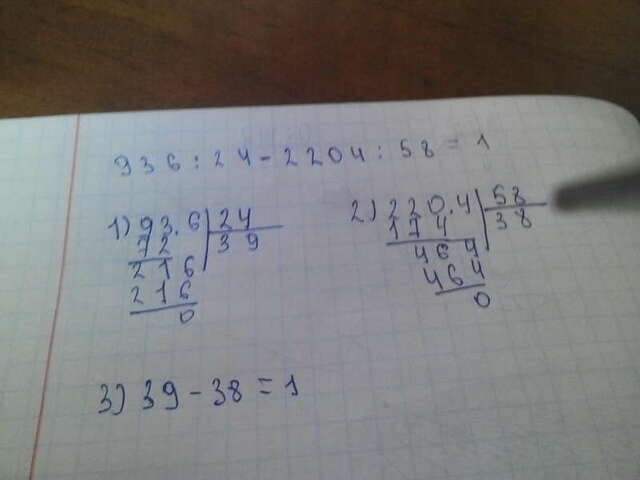 936:24-2204:58=1
1) 93.6 24 2) 220.4 58
72 39 174 38
216 464
216 464
0 0
3) 39-38=1